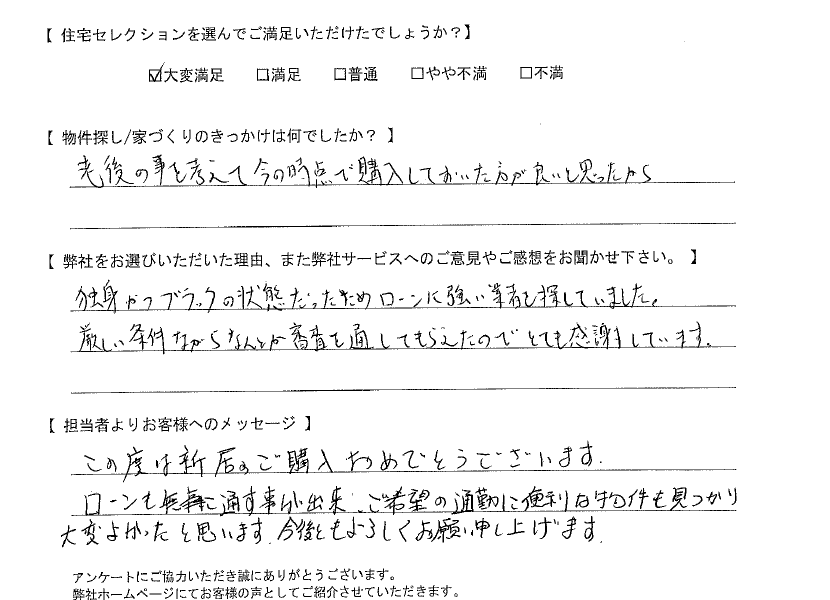 【 住宅セレクションを選んでご満足いただけたでしょうか？】
☑大変満足 □満足 □普通 □やや不満 □不満
【 物件探し/家づくりのきっかけは何でしたか？ 】
老後の事を考えて今の時点で購入しておいた方が良いと思ったから
【 弊社をお選びいただいた理由、また弊社サービスへのご意見やご感想をお聞かせ下さい。 】
独身かつブラックの状態だったためローンに強い業者を探していました。
厳しい条件ながらなんとか審査を通してもらえたのでとても感謝しています。
【 担当者よりお客様へのメッセージ 】
この度は新居のご購入おめでとうございます.
ローンも無事に通す事が出来、ご希望の通勤に便利な物件も見つかり
大変よかったと思います.今後ともよろしくお願い申し上げます.
アンケートにご協力いただき誠にありがとうございます。
弊社ホームページにてお客様の声としてご紹介させていただきます。